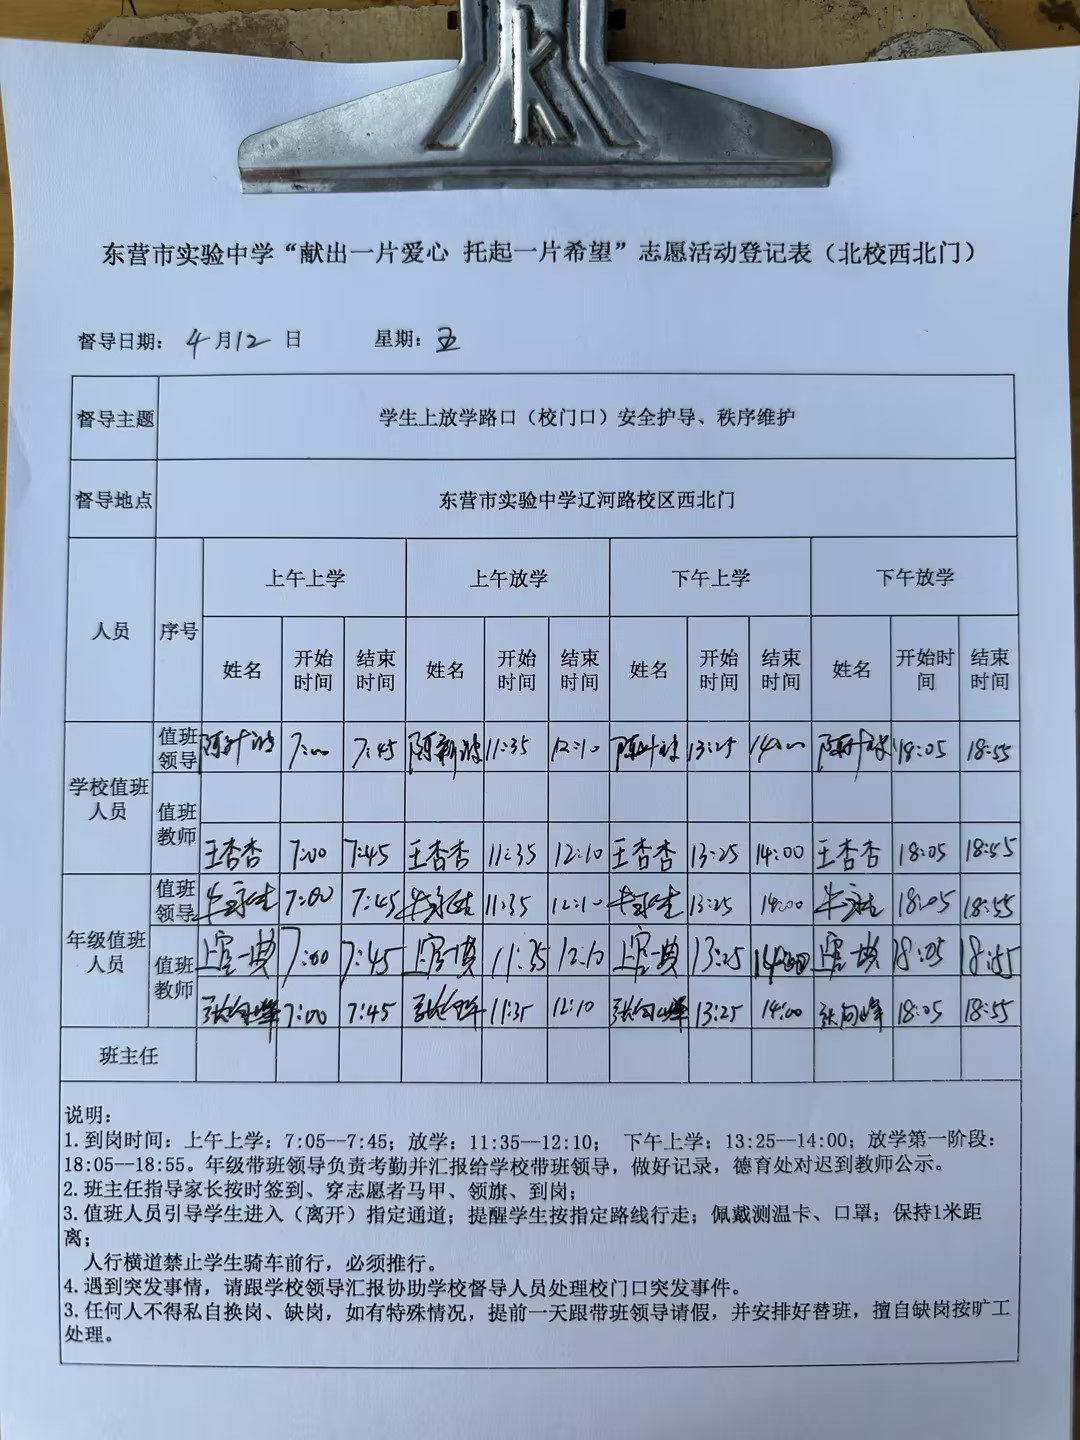 东营市实验中学“献出一片爱心 托起一片希望”志愿活动登记表（北校西北门）
督导日期： 4月12日 星期：五
督导主题 学生上放学路口（校门口）安全护导、秩序维护
督导地点 东营市实验中学辽河路校区西北门
人员 序号 上午上学 上午放学 下午上学 下午放学
姓名 开始时间 结束时间 姓名 开始时间 结束时间 姓名 开始时间 结束时间 姓名 开始时间 结束时间
学校值班人员 值班领导 7:00 7:45 陈新波 11:35 12:10 13:25 14:00 18:05 18:55
值班教师
王杏杏 7:00 7:45 王杏杏 11:35 12:10 王杏杏 13:25 14:00 王杏杏 18:05 18:55
年级值班人员 值班领导 7:00 7:45 11:35 12:10 13:25 14:00 18:05 18:55
值班教师 上官一典 7:00 7:45 上官一典 11:35 12:10 上官一典 13:25 14:00 上官一典 18:05 18:55
张向峰 7:00 7:45 张向峰 11:35 12:10 张向峰 13:25 14:00 张向峰 18:05 18:55
班主任
说明：
1.到岗时间：上午上学：7:05--7:45；放学：11:35--12:10； 下午上学：13:25--14:00；放学第一阶段：
18:05--18:55。年级带班领导负责考勤并汇报给学校带班领导，做好记录，德育处对迟到教师公示。
2.班主任指导家长按时签到、穿志愿者马甲、领旗、到岗；
3.值班人员引导学生进入（离开）指定通道；提醒学生按指定路线行走；佩戴测温卡、口罩；保持1米距
离；
人行横道禁止学生骑车前行，必须推行。
4.遇到突发事情，请跟学校领导汇报协助学校督导人员处理校门口突发事件。
3.任何人不得私自换岗、缺岗，如有特殊情况，提前一天跟带班领导请假，并安排好替班，擅自缺岗按旷工
处理。